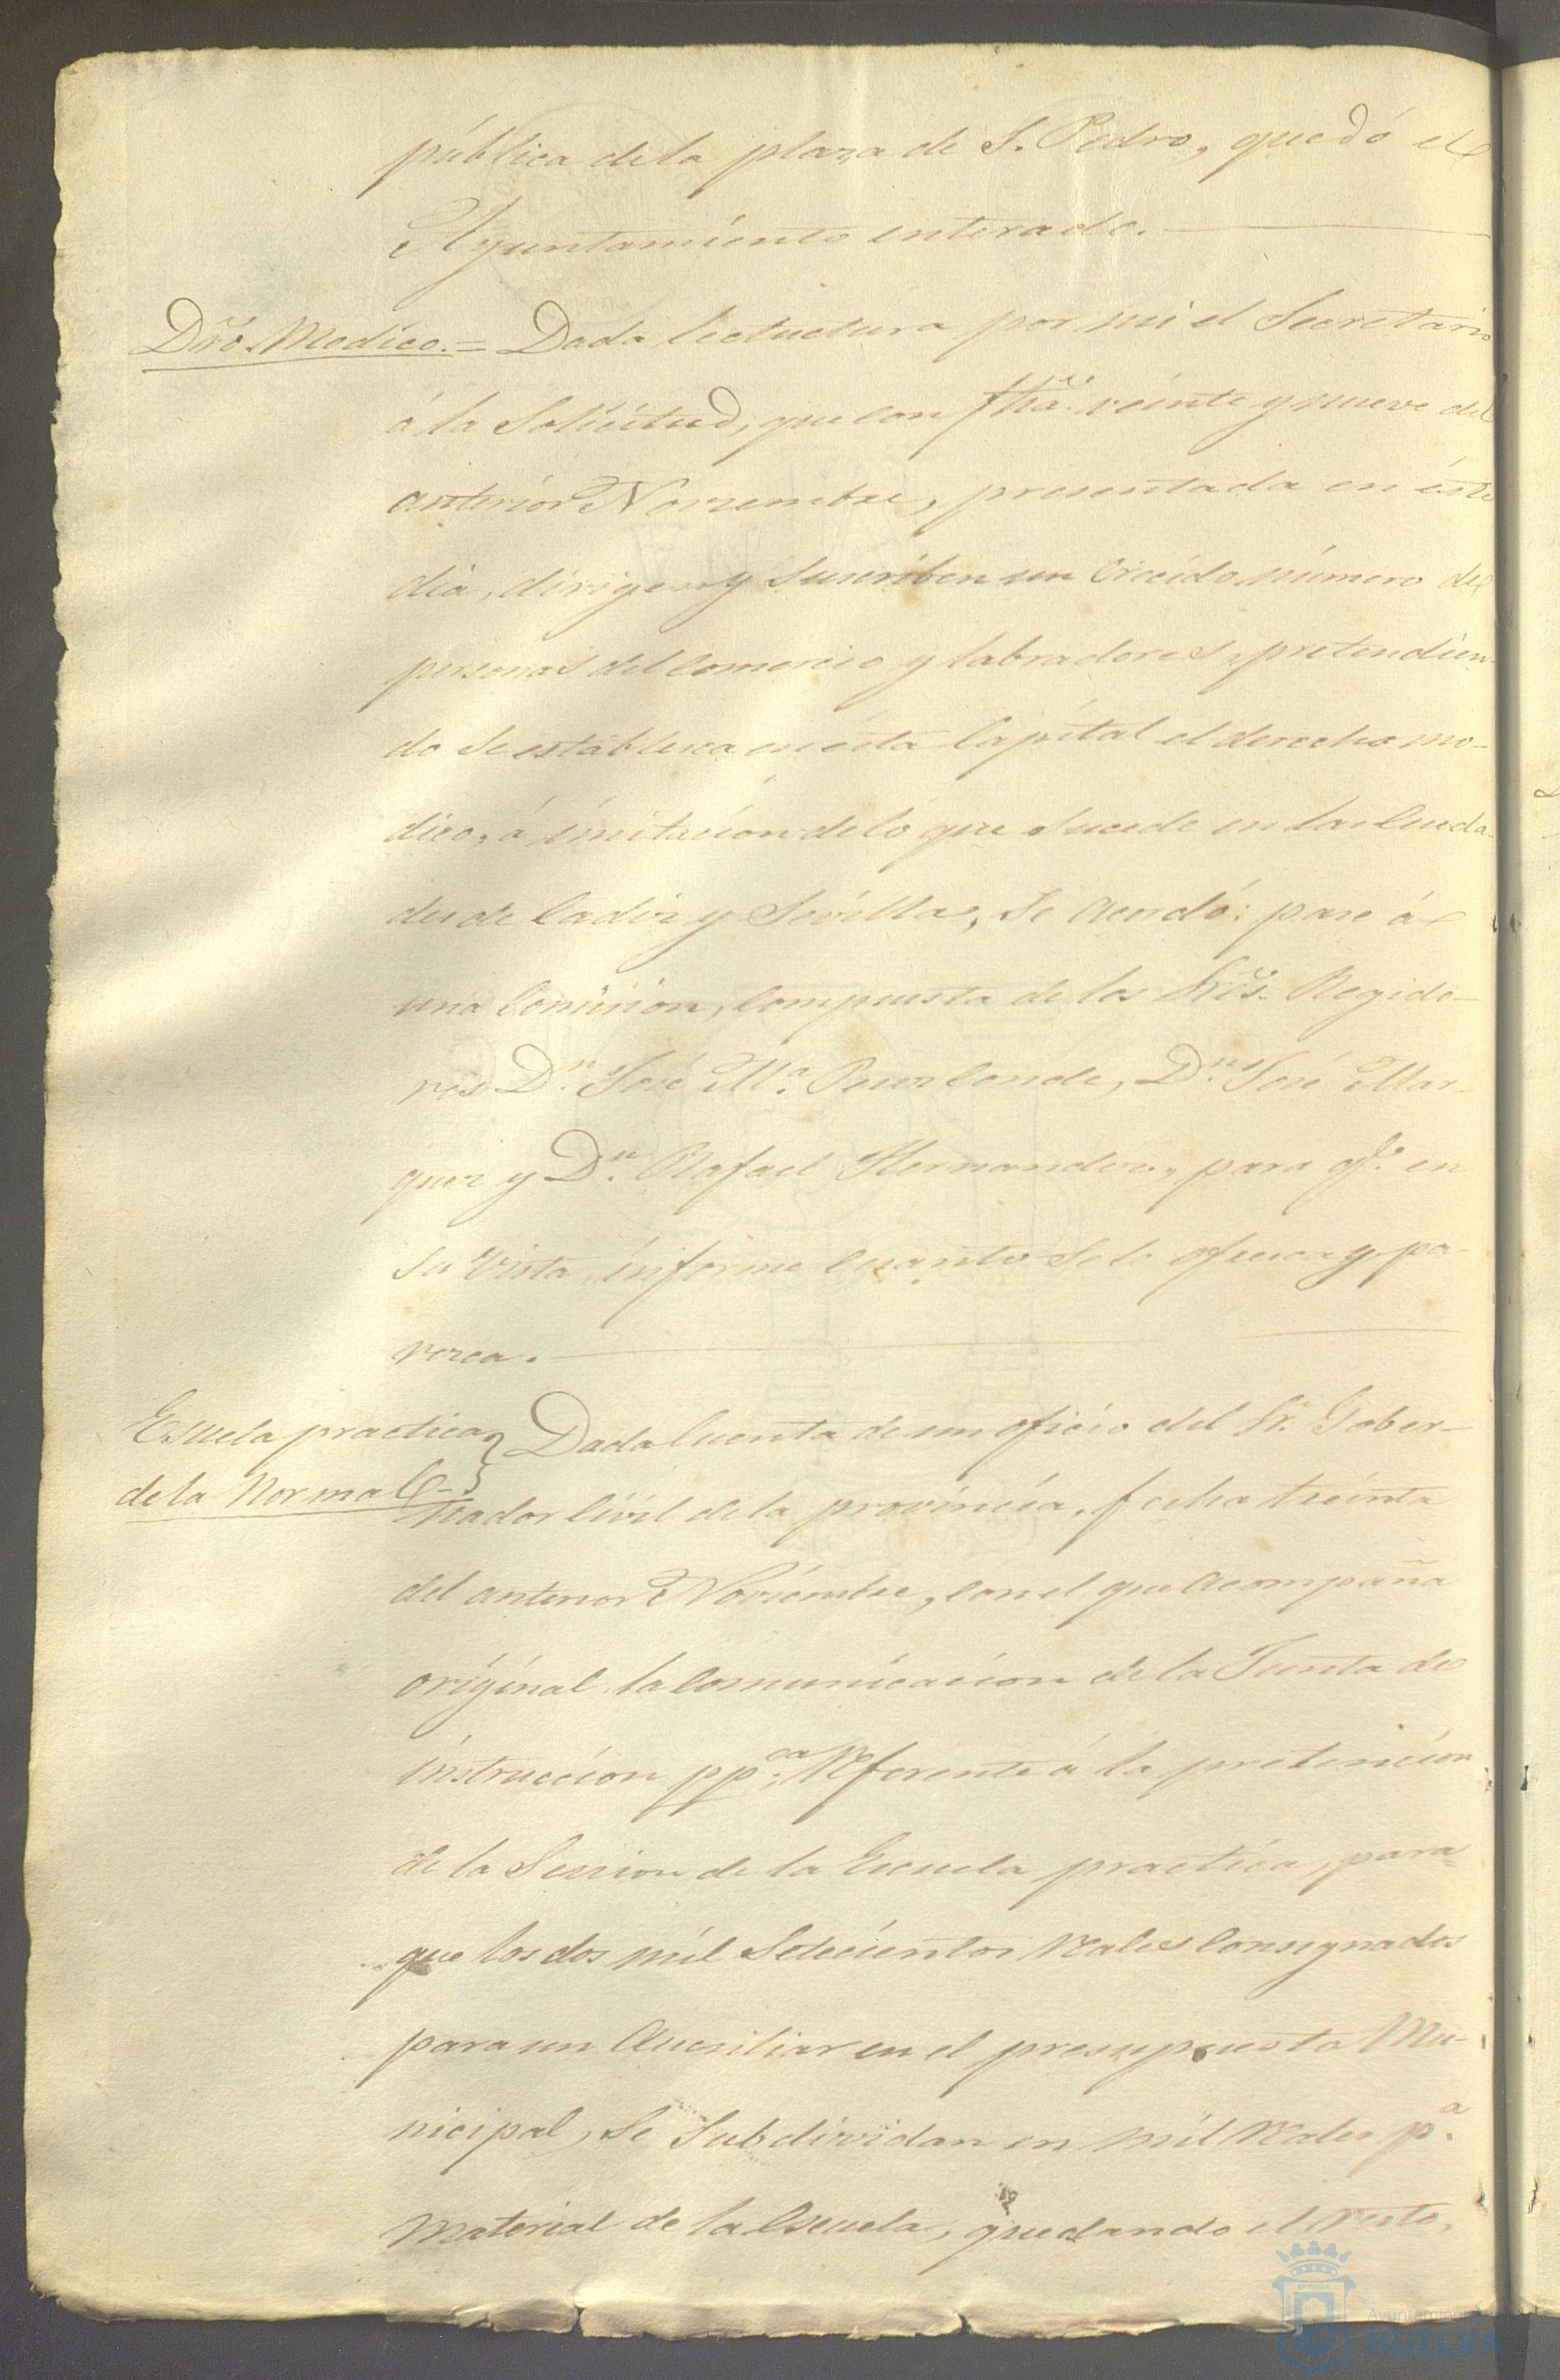 pública de la plaza de S. Pedro, quedó el
Ayuntamiento enterado.
Dro. Modico. = Dada lectuctura por mi el Secretario
á la Solicitud, que con fha. veinte y nueve del
anterior Noviembre, presentada en éste
dia, dirigen y suscriben un Crecido número de
personas del Comercio y labradores, pretendien-
do se establezca en ésta Capital el derecho mo-
dico, á imitacion de lo que sucede en las Ciuda-
des de Cadiz y Sevilla, Se Acordó: pase á
una Comision, Compuesta de los Sres. Regido-
res Dn. José Ma. Conde, Dn. José Mar-
quez y Dn. Rafael Hernandez, para qe. en
su vista, informe Cuanto se le ofrezca y pa-
rezca.
Escuela practica
de la Normal
Dada Cuenta de un oficio del Sr. Gober-
nador Civil de la provincia, fecha treinta
del anterior Noviembre, con el que Acompaña
original la Comunicacion de la Junta de
instruccion ppca. Referente á la pretencion
de la Seccion de la Escuela practica, para
que los dos mil Setecientos Reales Consignados
para un Aucsiliar en el presupuesto Mu-
nicipal, Se Subdividan en mil Reales pa.
Material de la Escuela, quedando el resto,
Ayuntamiento
HUELVA